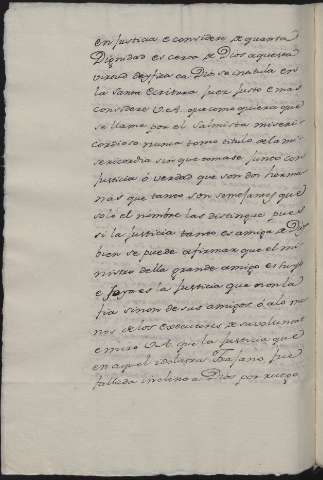 en justicia e considere de quanta
Dignidad es cerca de Dios aquesta
virtud de justicia Dios se intitula en
la Santa Escritura juez justo e mas
considere V.A. que como quiera que
se llame por el Salmista miseri
cordioso nunca tomo titulo de la mi
sericordia sin que tomase junto con
justicia ó verdad que son dos herma
nas que tanto son semejantes que
solo el nombre las distingue pues
si la justicia tanto es amiga de Dios
bien se puede afirmar que el mi
nistro della grande amigo es suyo
e pues la justicia que non la
fia sinon de sus amigos ó alo me
nos de los executores de su voluntad
e mire V.A. que la justicia que
en aquel idolatra Trajano fue
fallada inclino a Dios por ruego